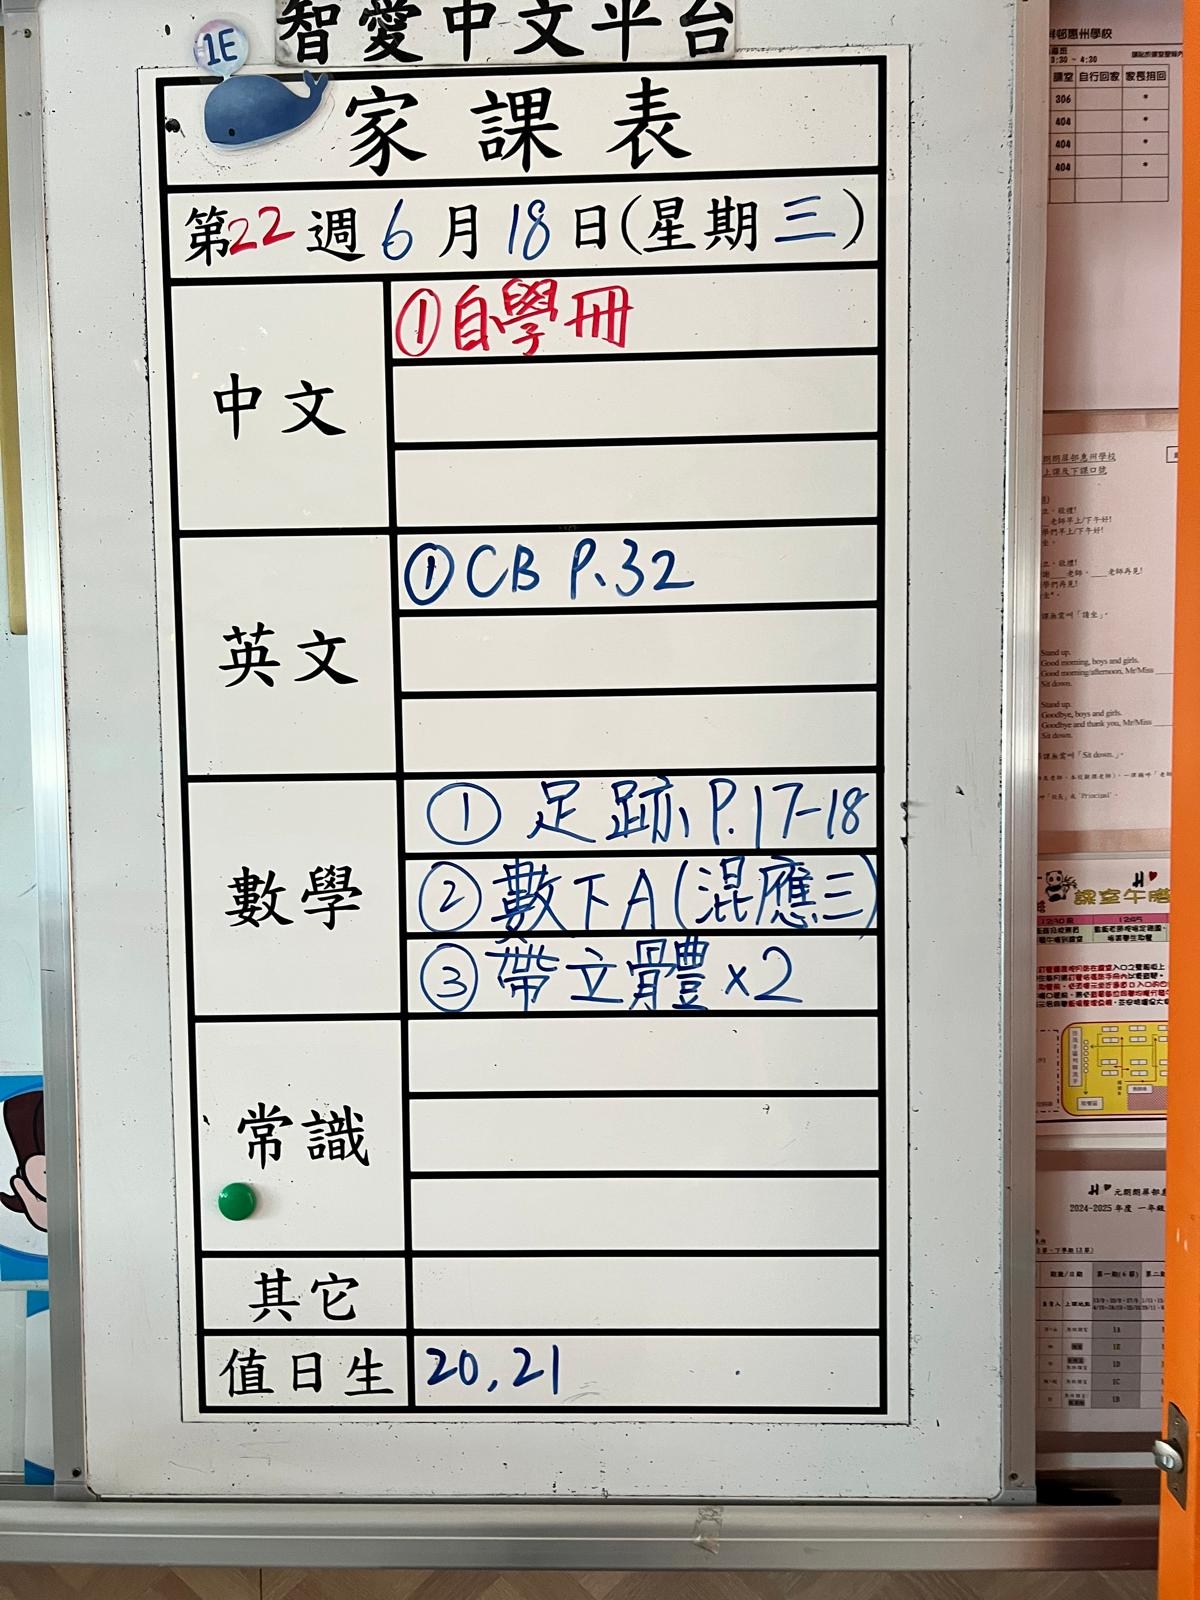 智愛中文平台
1E
家課表
第22週6月18日(星期三)
中文
①自學冊
英文
①CB P.32
數學
①足跡 P.17-18
②數下A(混應三)
③帶立體x2
常識
其它
值日生
20,21
屯惠州學校
3:30 ~ 4:30
課室 自行回家 家長捎回
306 *
404 *
404 *
404 *
朗朗屏邨惠州學校
上課及下課口號
Stand up.
Good morning, boys and girls.
Good morning/afternoon, Mr/Miss
Sit down.
Stand up.
Goodbye, boys and girls.
Goodbye and thank you, Mr/Miss
Sit down.
課室午膳
12:30 12:55
元朗朗屏邨惠
2024-2025 年度 一年級
1A
1E
1D
1C
1B